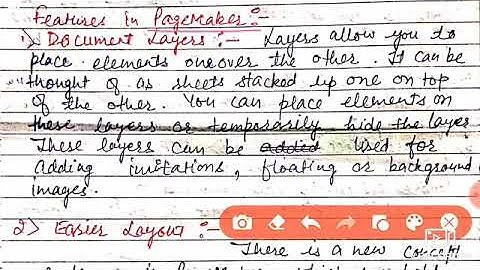 Features in PageMaker:-
1) Document Layers:- Layers allow you to
place elements one over the other. It can be
thought of as sheets stacked up one on top
of the other. You can place elements on
these layers or temporarily hide the layer
These layers can be added used for
adding imitations, floating or background
images.
2) Easier Layout :-
There is a new concept